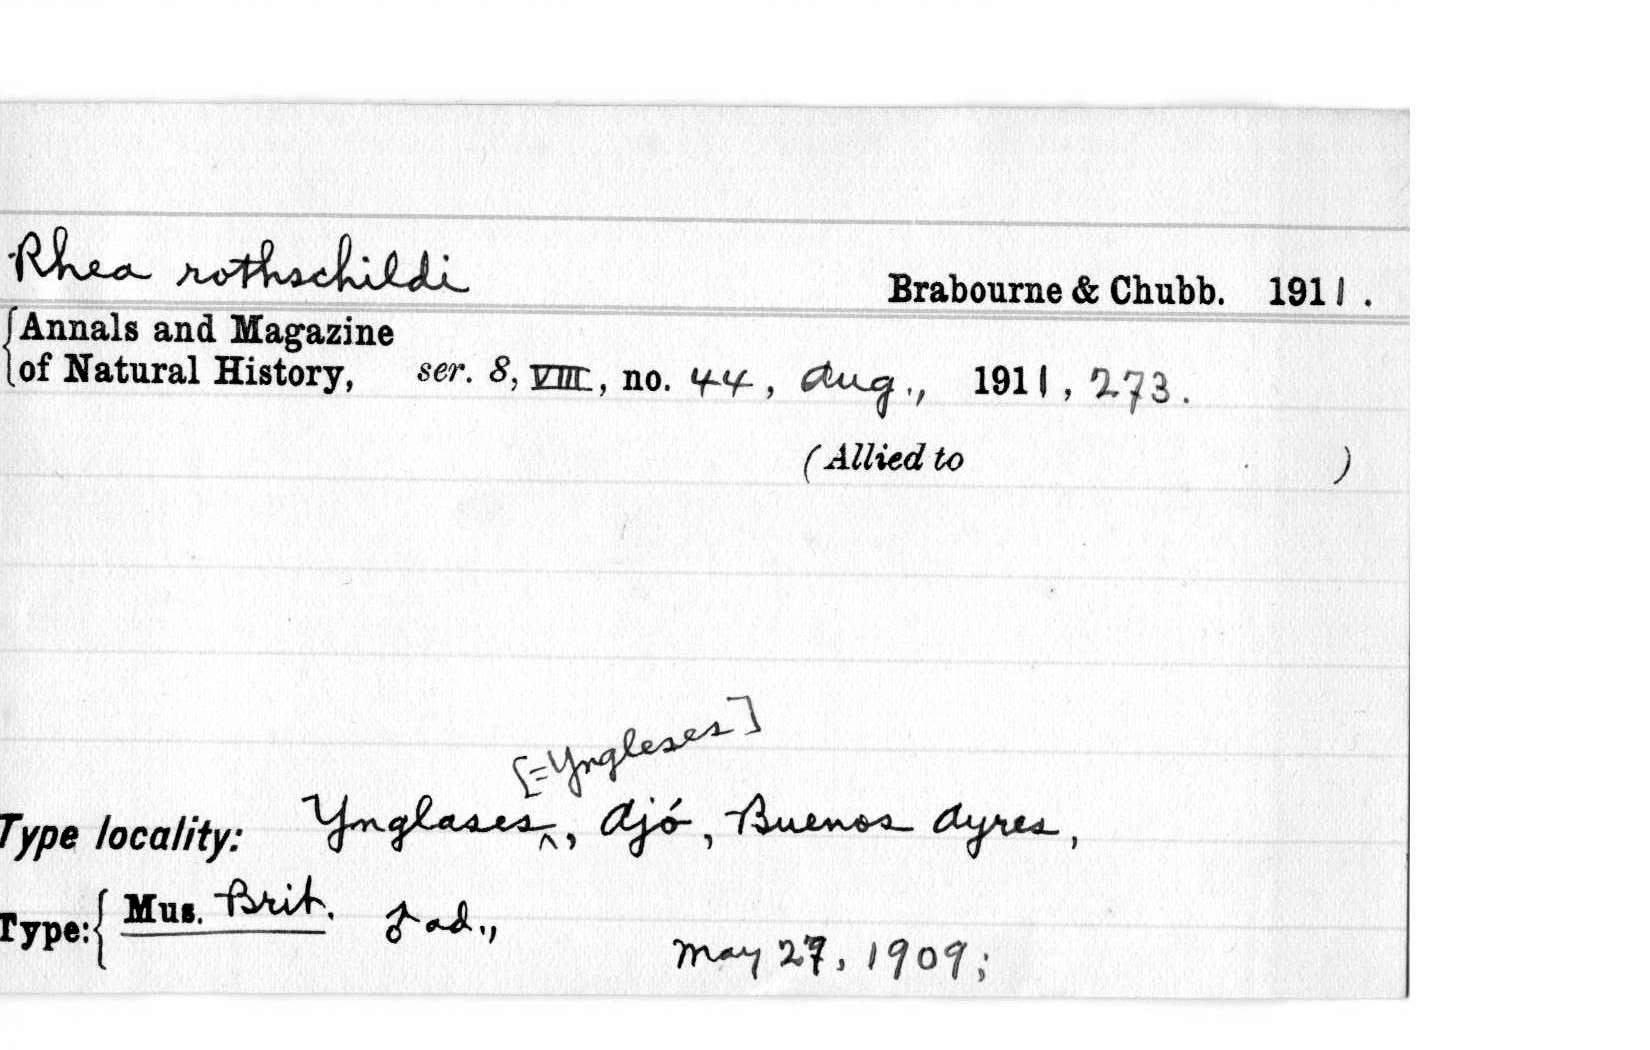 Rhea rothschildi Brabourne & Chubb. 1911.
Annals and Magazine
of Natural History, ser. 8, VIII, no. 44, Aug., 1911, 273.
(Allied to )
[=Yngleses]
Type locality: Ynglases^, Ajó, Buenos Ayres,
Type: Mus. Brit. ♂ ad.,
May 27, 1909;